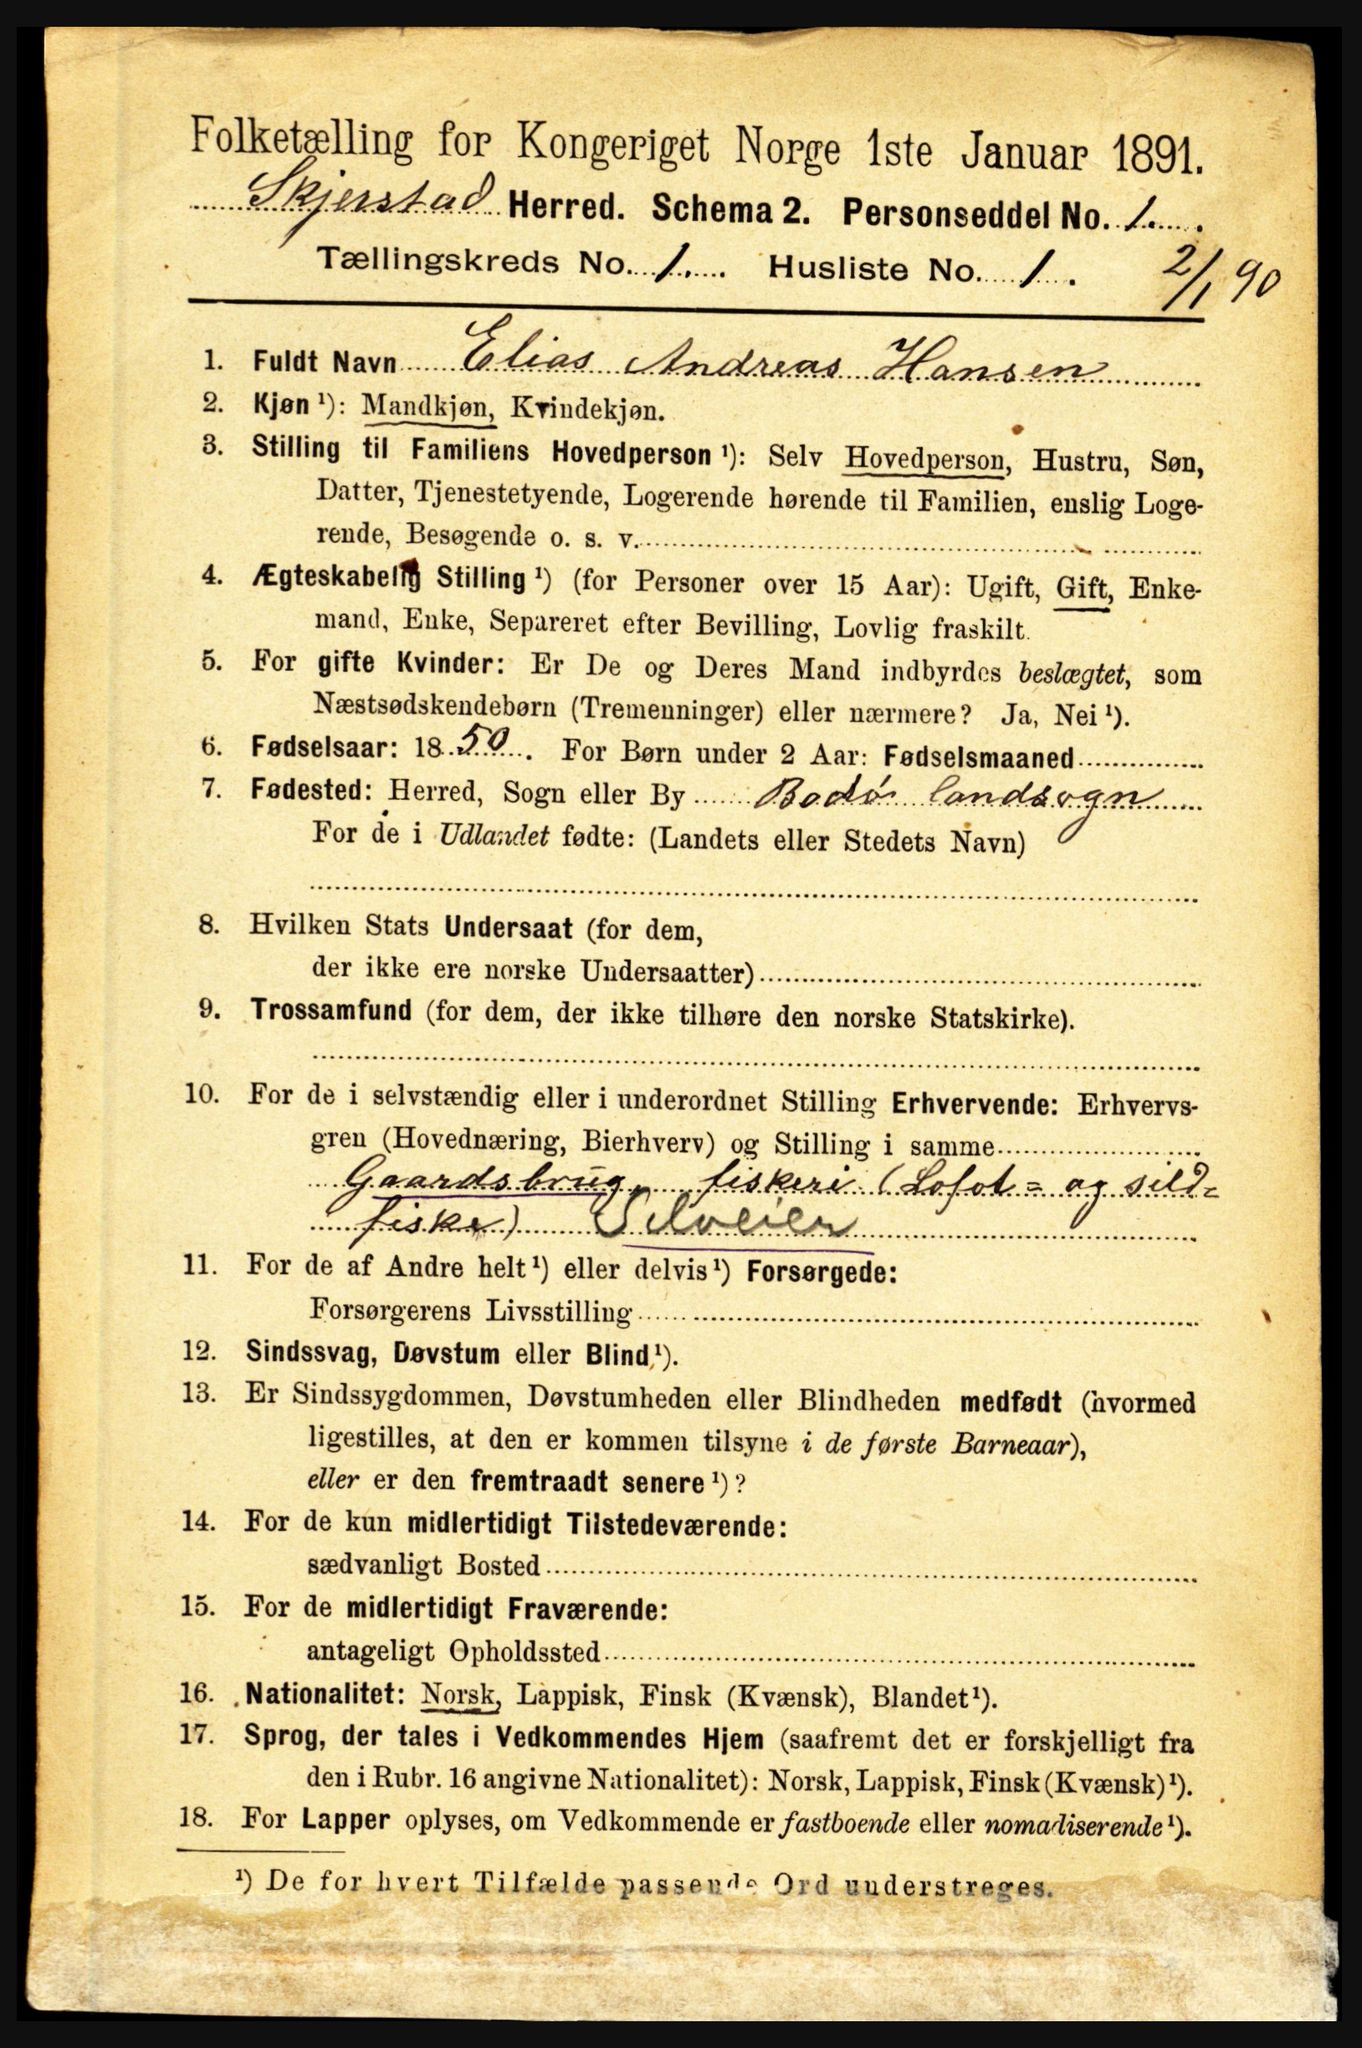 Folketælling for Kongeriget Norge 1ste Januar 1891.
Skjerstad Herred. Schema 2. Personseddel No. 1.
Tællingskreds No. 1. Husliste No. 1. 2/1 90
1. Fuldt Navn Elias Andreas Hansen
2. Kjøn ¹): Mandkjøn, Kvindekjøn.
3. Stilling til Familiens Hovedperson ¹): Selv Hovedperson, Hustru, Søn,
Datter, Tjenestetyende, Logerende hørende til Familien, enslig Loge-
rende, Besøgende o. s. v.
4. Ægteskabelig Stilling ¹) (for Personer over 15 Aar): Ugift, Gift, Enke-
mand, Enke, Separeret efter Bevilling, Lovlig fraskilt.
5. For gifte Kvinder: Er De og Deres Mand indbyrdes beslægtet, som
Næstsødskendebørn (Tremenninger) eller nærmere? Ja, Nei ¹).
6. Fødselsaar: 1850. For Børn under 2 Aar: Fødselsmaaned
7. Fødested: Herred, Sogn eller By Bodø landsogn
For de i Udlandet fødte: (Landets eller Stedets Navn)
8. Hvilken Stats Undersaat (for dem,
der ikke ere norske Undersaatter)
9. Trossamfund (for dem, der ikke tilhøre den norske Statskirke).
10. For de i selvstændig eller i underordnet Stilling Erhvervende: Erhvervs-
gren (Hovednæring, Bierhverv) og Stilling i samme
Gaardsbrug, fiskeri (Lofot= og sild=
fiske) Selveier
11. For de af Andre helt ¹) eller delvis ¹) Forsørgede:
Forsørgerens Livsstilling
12. Sindssvag, Døvstum eller Blind ¹).
13. Er Sindssygdommen, Døvstumheden eller Blindheden medfødt (hvormed
ligestilles, at den er kommen tilsyne i de første Barneaar),
eller er den fremtraadt senere ¹)?
14. For de kun midlertidigt Tilstedeværende:
sædvanligt Bosted
15. For de midlertidigt Fraværende:
antageligt Opholdssted
16. Nationalitet: Norsk, Lappisk, Finsk (Kvænsk), Blandet ¹).
17. Sprog, der tales i Vedkommendes Hjem (saafremt det er forskjelligt fra
den i Rubr. 16 angivne Nationalitet): Norsk, Lappisk, Finsk (Kvænsk) ¹).
18. For Lapper oplyses, om Vedkommende er fastboende eller nomadiserende ¹).
¹) De for hvert Tilfælde passende Ord understreges.